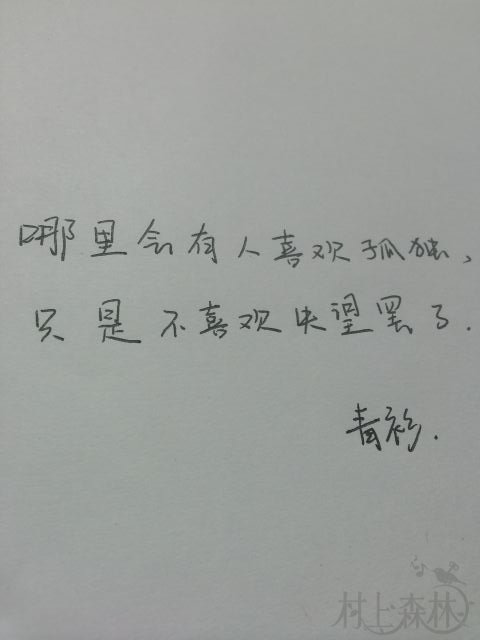 哪里会有人喜欢孤独，
只是不喜欢失望罢了.
青衫.
村上森林